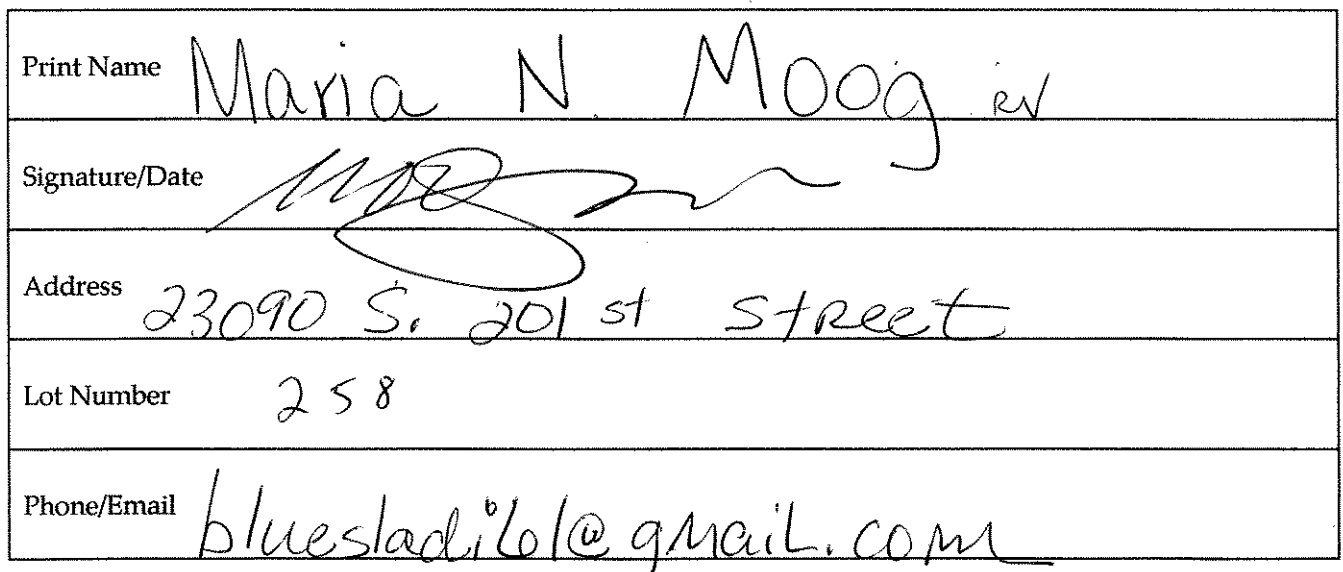 Print Name Maria N. Moog RN
Signature/Date
Address 23090 S. 201 st Street
Lot Number 258
Phone/Email bluesladi61@gmail.com